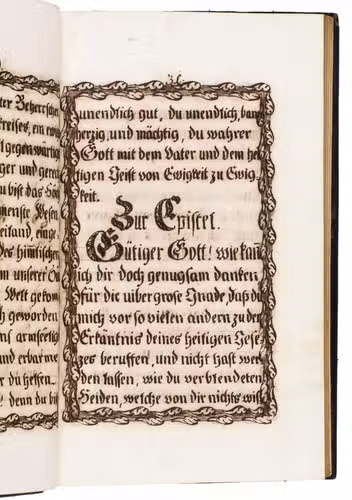 ter Beherrscher
kreises, ein ewi
l gegenwärtig
ger und gerech
u bist das Höch
Wesen
eiland einge
des himlischen
m unserer
Welt gekom
ch geworden
ns armseelig
und erbarme
r du helfen.
! denn du bist
31.
unendlich gut, du unendlich, barm
herzig, und mächtig, du wahrer
Gott mit dem Vater und dem hei
ligen Geist von Ewigkeit zu Ewig
keit.
Zur Epistel.
Gütiger Gott! wie kañ
ich dir doch genugsam danken
für die übergrose Gnade, daß du
mich vor so vielen andern zu der
Erkäntnis deines heiligen Gese
zes beruffen, und nicht hast wer
den lassen, wie du verblendeten
Heiden, welche von dir nichts wiss